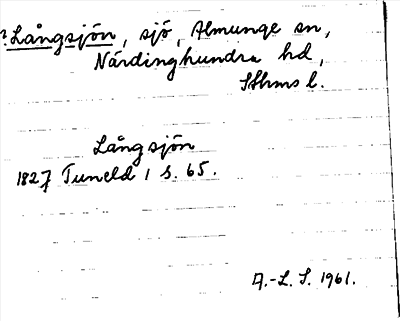 ? Långsjön, sjö, Almunge sn,
Närdinghundra hd,
Sthms l.
Långsjön
1827 Tuneld 1 s. 65.
A.-L. S. 1961.